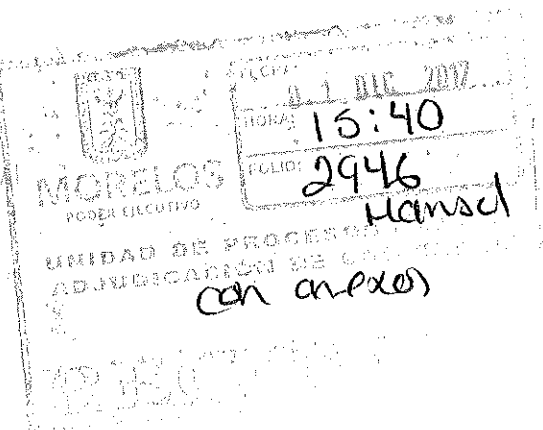 FECHA: 01 DIC 2017
HORA: 15:40
FOLIO: 2946
MORELOS
PODER EJECUTIVO
Hansel
UNIDAD DE PROCESOS
ADJUDICACIÓN DE
con anexos